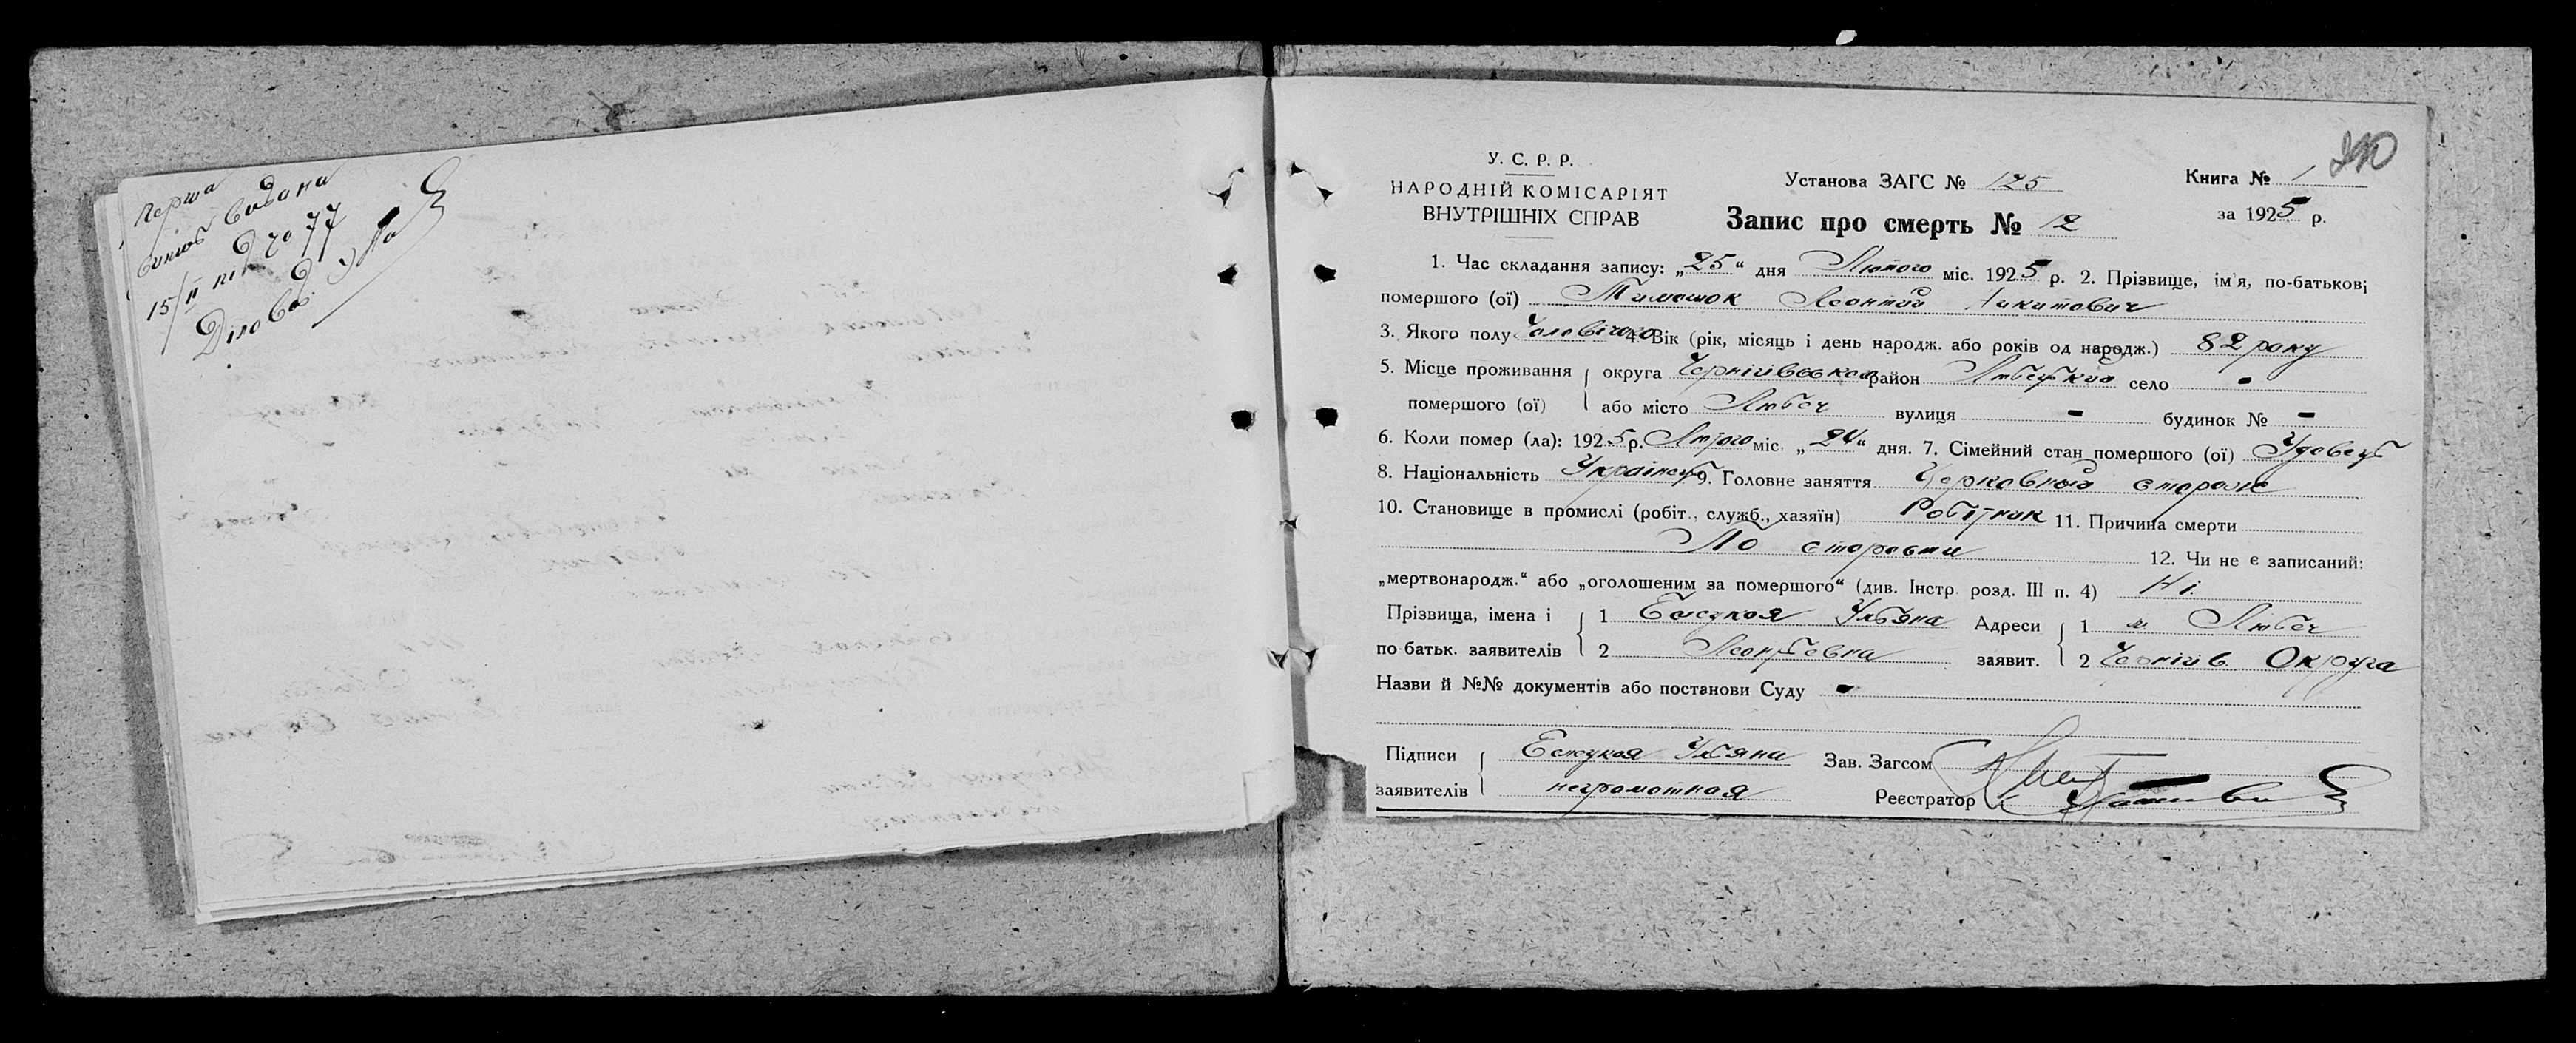 Перша
видана
15/II під № 77
Діловод
290
У. С. Р. Р.
НАРОДНІЙ КОМІСАРІЯТ
ВНУТРІШНІХ СПРАВ
Установа ЗАГС № 125
Книга № 1
Запис про смерть № 12
за 1925 р.
1. Час складання запису: „25“ дня Лютого міс. 1925 р. 2. Прізвище, ім'я, по-батькові
помершого (ої) Тимошок Леонтий Никитович
3. Якого полу Чоловічого 4. Вік (рік, місяць і день народж. або років од народж.) 82 року
5. Місце проживання { округа Чернігівської район Любецький село -
помершого (ої) або місто Любеч вулиця - будинок № -
6. Коли помер (ла): 1925 р. Лютого міс. „24“ дня. 7. Сімейний стан помершого (ої) Удовець
8. Національність Українець 9. Головне заняття Церковный сторож
10. Становище в промислі (робіт., служб., хазяїн) Робітник 11. Причина смерти
По старости 12. Чи не є записаний:
„мертвонародж.“ або „оголошеним за помершого“ (див. Інстр. розд. III п. 4) Ні.
Прізвища, імена і { 1 Ульяна Адреси { 1 м. Любеч
по батьк. заявителів 2 Леонтьевна заявит. 2 Чернігів. Округа
Назви й №№ документів або постанови Суду -
Підписи { Ульяна Зав. Загсом
заявителів неграмотная Реєстратор